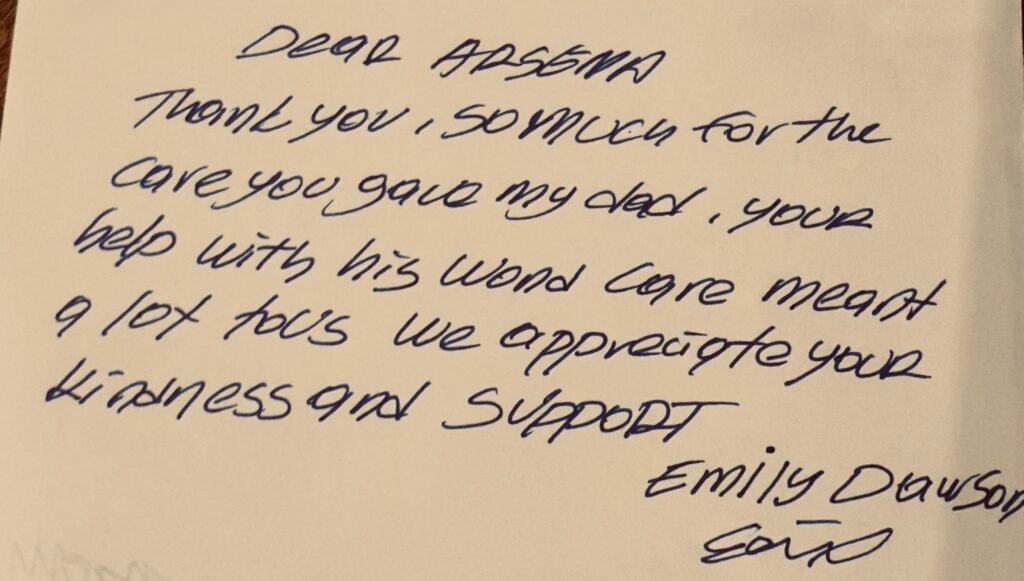 Dear ARSEMA
Thank you, so much for the
care you gave my dad, your
help with his wond care meant
a lot to us we appreciate your
kindness and support
Emily Dawson